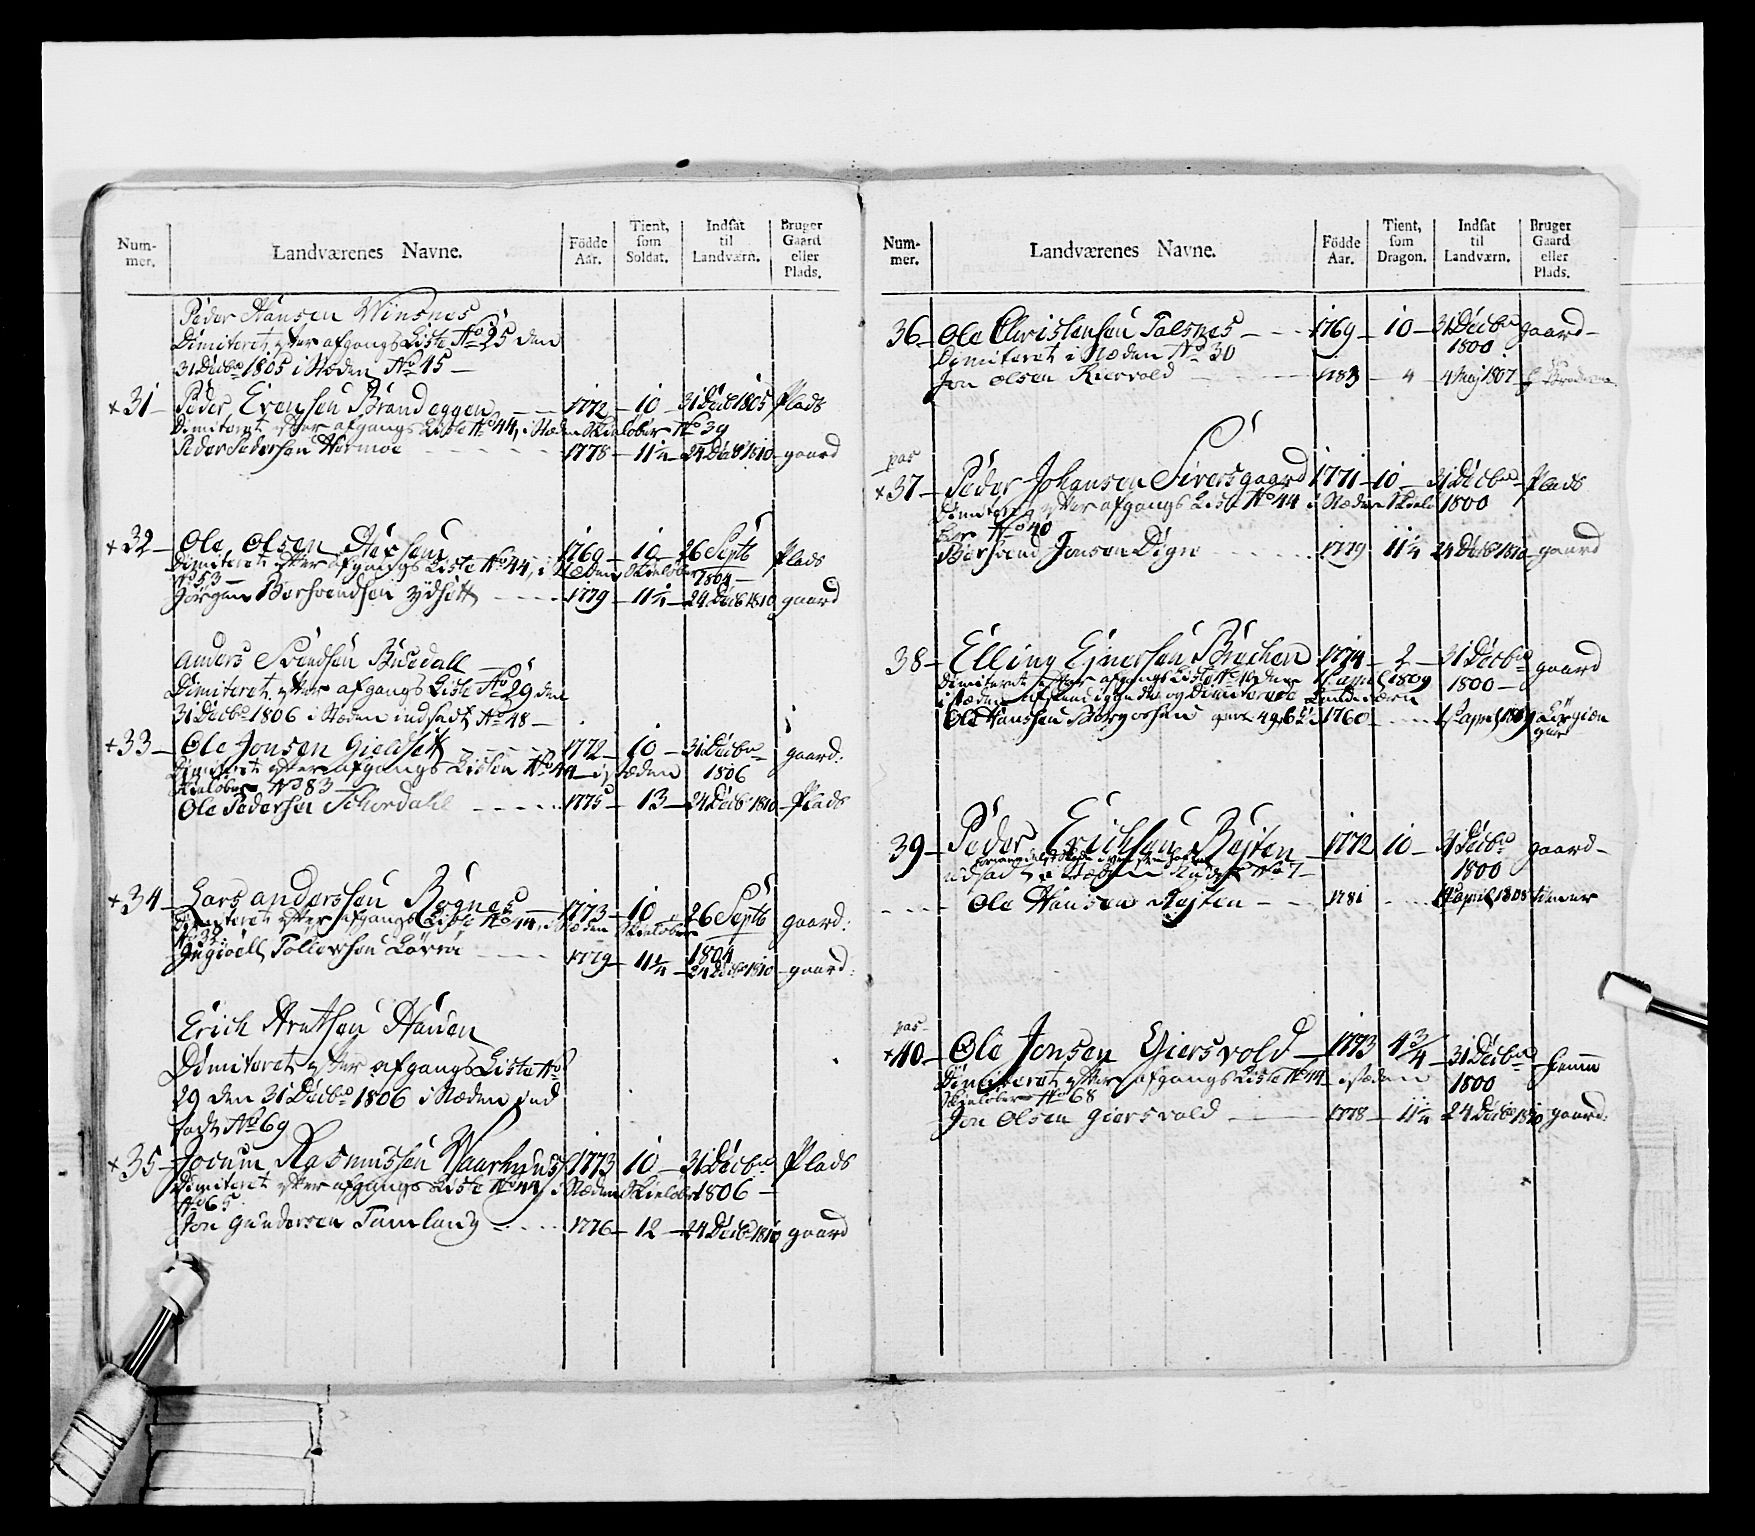 Num-
mer.
Landværenes Navne.
Födde
Aar.
Tient,
som
Soldat.
Indsat
til
Landværn.
Bruger
Gaard
eller
Plads.
Peder Hansen Winsnes
Dimiteret efter afgangs Liste No 25 den
31 Decbr 1805 i Stæden No 45 —
+31— Peder Evensen Brandeggen — 1772 — 10 — 31 Decb 1805 Plads
Dimiteret efter afgangs Liste No 44, i Stæden Skieløber No 39
Peder Pedersen Hormoe 1778 — 11¼ — 24 Decb 1810 — gaard
+32— Ole Olsen 1769 — 10 — 26 Septb Plads
Dimiteret efter afgangs Liste No 44, i Stæden Skieløber 1804 —
No 53 —
Jørgen Børsvendsen Ydsett 1779 — 11¼ — 24 Decb 1810 gaard
Anders Svendsen Busedall
Dimiteret efter afgangs Liste No 29 den
31 Decbr 1806 i Stæden indsadt No 48 —
+33— Ole Jonsen Gieldsett 1772 — 10 — 31 Decbr gaard
Dimiteret efter afgangs Listen No 44 — i Stæden 1806
Skieløber No 83 —
Ole Pedersen Schordahl 1775 — 13 — 24 Decb 1810 — Plads
+34— Lars Anderssen Rognes 1773 — 10 — 26 Septb gaard
Dimiteret efter afgangs Liste No 44, i Stæden Skieløber 1804
Ingvell Tollevsen Løvmo 1779 — 11¼ — 24 Decbr 1810 — gaard
Erich Arntsen Hauen
Dimiteret efter afgangs Liste No
29 den 31 Decbr 1806 i Stæden ind
sadt No 69
+35— Jocum Rasmussen Waarhuus 1773 10 — 31 Decbr Plads
Dimiteret efter afgangs Liste No 44, i Stæden Skieløber 1806 —
No 65
Jon Gundersen Tamlang 1776 — 12 — 24 Decbr 1810 gaard
Num-
mer.
Landværenes Navne.
Födde
Aar.
Tient,
som
Dragon.
Indsat
til
Landværn.
Bruger
Gaard
eller
Plads.
36— Ole Christensen Talsnes — 1769 — 10 — 31 Decbr gaard —
1800
Dimiteret i Stæden No 30
Jon Olsen Kiervold 1783 — 4 — 4 Maj 1807
pas
+37— Peder Johansen Siversgaard 1771 — 10 — 31 Decbr — Plads
Dimiteret efter afgangs Liste No 44 i Stæden Skielø 1800
ber No 40
Børsvend Jensen Digre 1779 11¼ 24 Decb 1810 — gaard
38— Elling Ejnersen Brechen 1774 — 2 — 31 Decbr gaard
Dimiteret efter afgangs Liste 1809 1800 —
i Stæden Landværn
Ole Hanssen 1760 april 1809
39— Peder Erichsen Røjten — 1772 10 — 31 Decbr gaard —
1800
No 7 —
Ole Hansen Røjten — 1781 april 1808
pas
+40— Ole Jonsen Giersvold — 1773 4¾ — 31 Decbr — hiemme
Dimiteret efter afgangs Liste No 44 i Stæden 1800
Skieløber No 68
Jon Olsen Giersvold 1778 — 11¼ 24 Decbr 1810 gaard